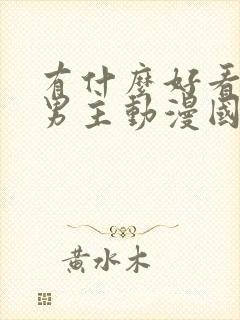 有什麼好看
男主動漫國
黃水木